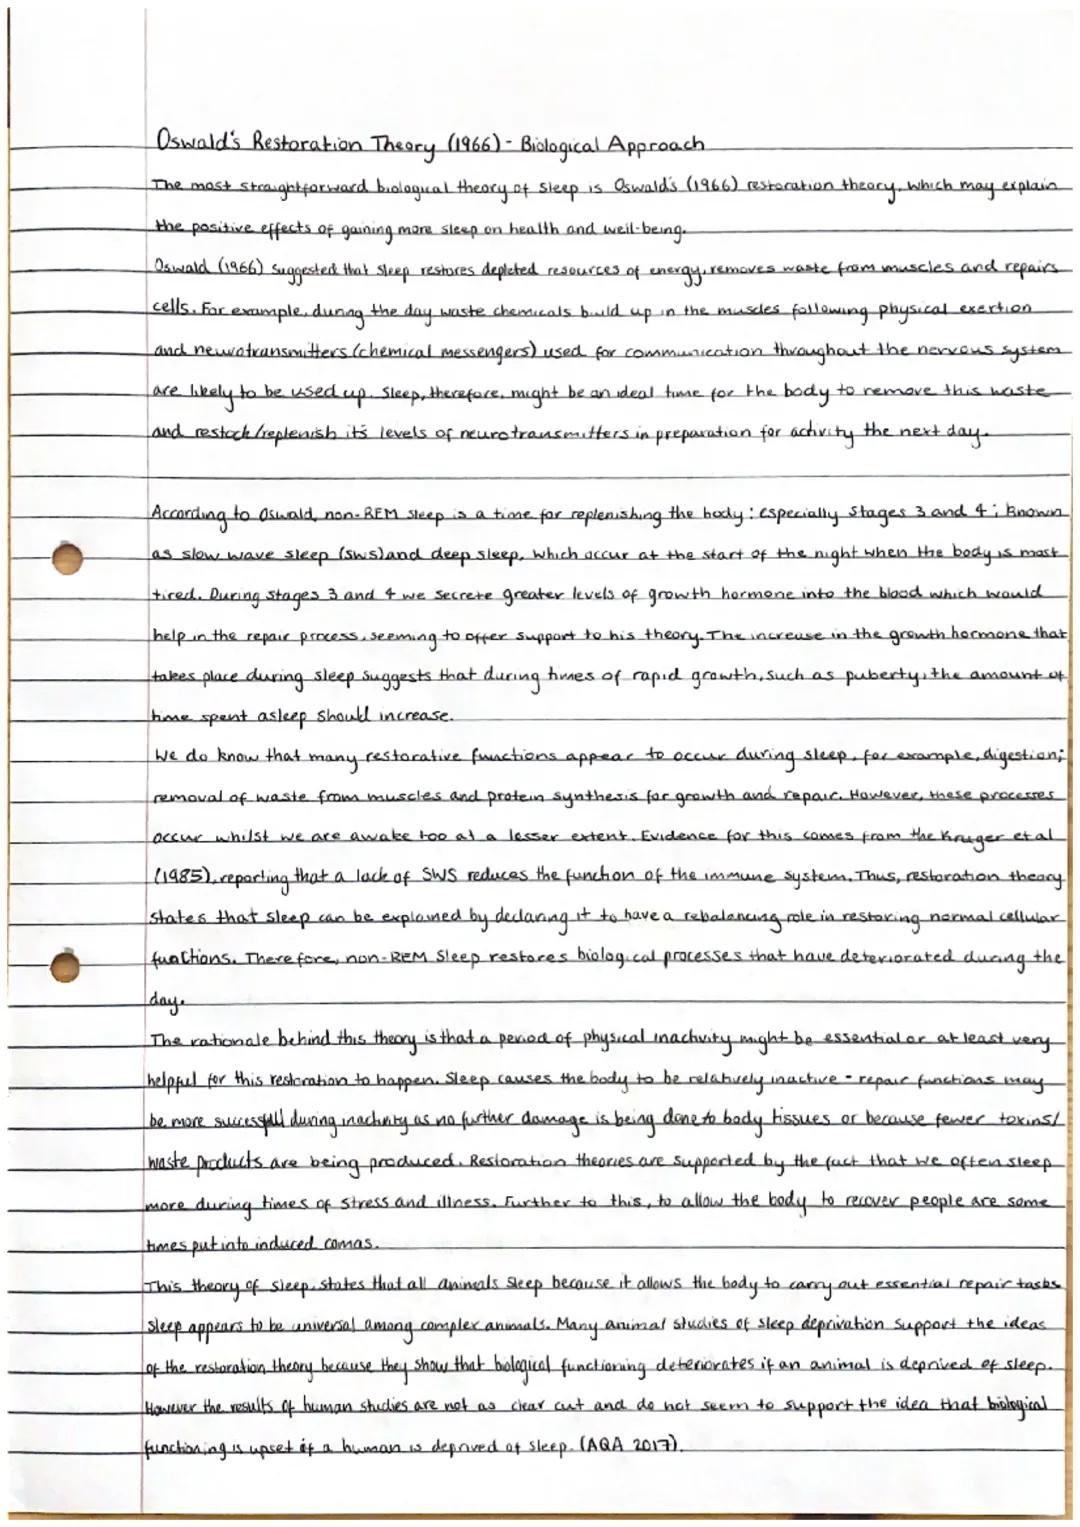 Oswald's Restoration Theory (1966) - Biological Approach
The most straightforward biological theory of sleep is Oswald's (1966) restoration theory, which may explain
the positive effects of gaining more sleep on health and well-being.
Oswald (1966) suggested that sleep restores depleted resources of energy, removes waste from muscles and repairs
cells. For example, during the day waste chemicals build up in the muscles following physical exertion
and neurotransmitters (chemical messengers) used for communication throughout the nervous system
are likely to be used up. Sleep, therefore, might be an ideal time for the body to remove this waste
and restock/replenish it's levels of neurotransmitters in preparation for activity the next day.
According to Oswald, non-REM sleep is a time for replenishing the body: especially Stages 3 and 4; known
as slow wave sleep (SWS) and deep sleep, which occur at the start of the night when the body is most
tired. During stages 3 and 4 we secrete greater levels of growth hormone into the blood which would
help in the repair process, seeming to offer support to his theory. The increase in the growth hormone that
takes place during sleep suggests that during times of rapid growth, such as puberty, the amount of
time spent asleep should increase.
We do know that many restorative functions appear to occur during sleep, for example, digestion;
removal of waste from muscles and protein synthesis for growth and repair. However, these processes
occur whilst we are awake too at a lesser extent. Evidence for this comes from the Kruger et al
(1985), reporting that a lack of SWS reduces the function of the immune system. Thus, restoration theory
states that sleep can be explained by declaring it to have a rebalancing role in restoring normal cellular
functions. Therefore, non-REM Sleep restores biological processes that have deteriorated during the
day.
The rationale behind this theory is that a period of physical inactivity might be essential or at least very
helpful for this restoration to happen. Sleep causes the body to be relatively inactive - repair functions may
be more successfull during inactivity as no further damage is being done to body tissues or because fewer toxins/
waste products are being produced. Restoration theories are supported by the fact that we often sleep
more during times of stress and illness. Further to this, to allow the body to recover people are some
times put into induced comas.
This theory of sleep, states that all animals sleep because it allows the body to carry out essential repair tasks
sleep appears to be universal among complex animals. Many animal studies of sleep deprivation support the ideas
of the restoration theory because they show that biological functioning deteriorates if an animal is deprived of sleep.
However the results of human studies are not as clear cut and do not seem to support the idea that biological
functioning is upset if a human is deprived of sleep. (AQA 2017).